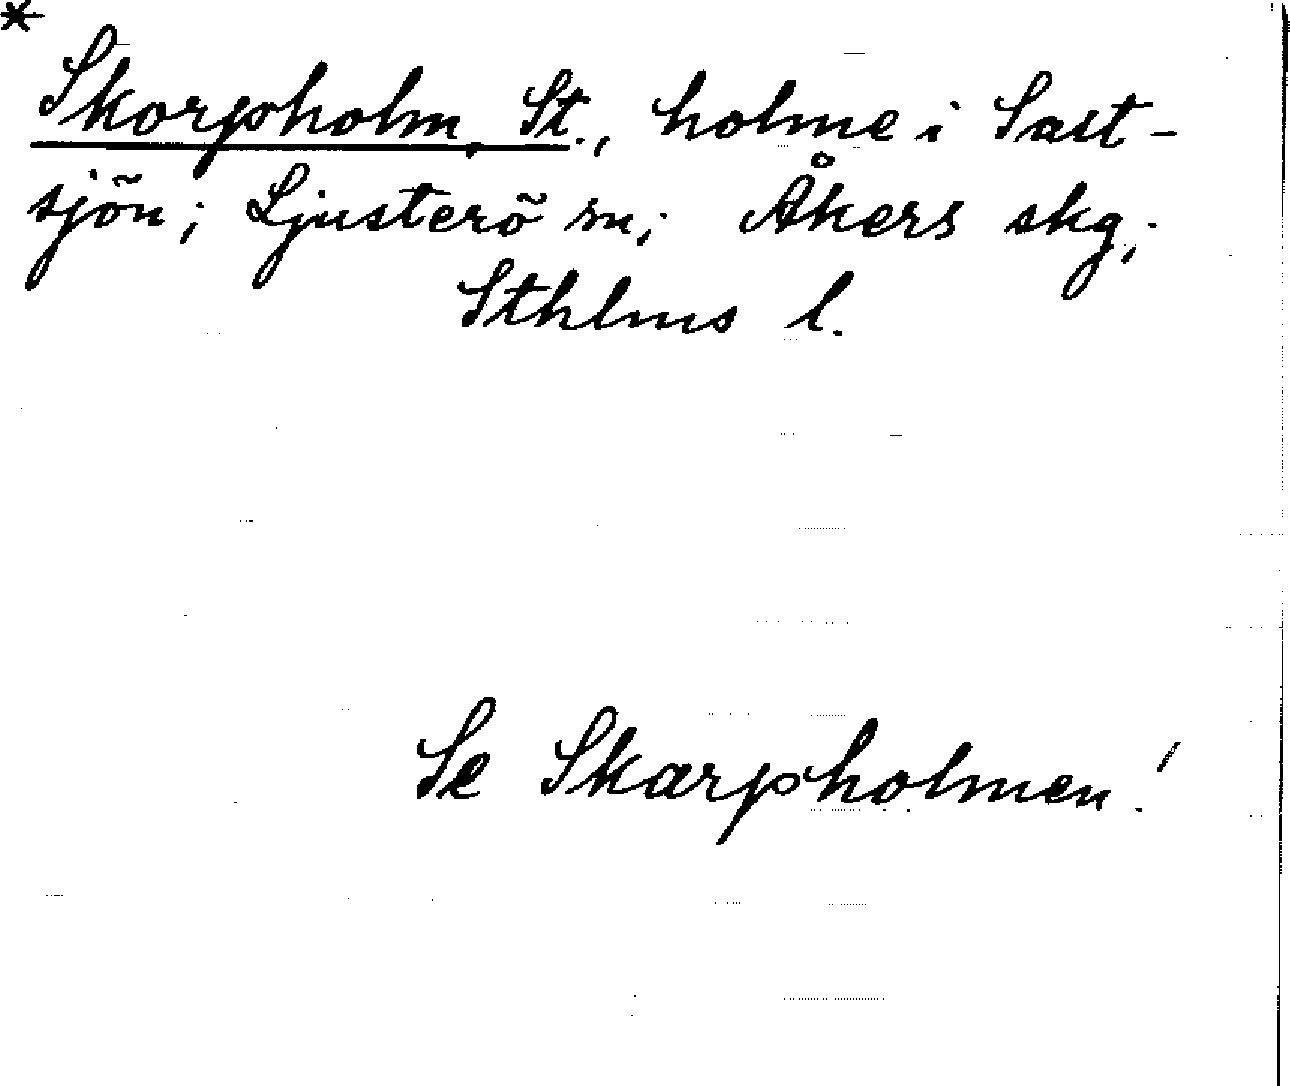 *
Skorpholm, St., holme i Salt-
sjön; Ljusterö sn; Åkers skg;
Sthlms l.
Se Skarpholmen!